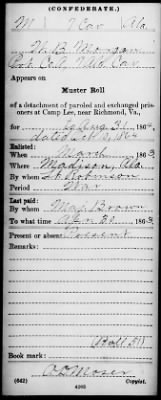 (CONFEDERATE.)
M 7 Cav Ala.
W. B. Morgan
Pvt. Co. A, 7 Ala Cav
Appears on
Muster Roll
of a detachment of paroled and exchanged pris-
oners at Camp Lee, near Richmond, Va.,
for to Aug 31, 1864
dated Oct 1864
Enlisted:
When March, 1863
Where Madison, Ala.
By whom Lt. Robinson
Period War
Last paid:
By whom Maj. Brown
To what time Apr 30, 1863
Present or absent Present
Remarks:
(Roll 51)
Book mark:
O C Moser
(642) Copyist.